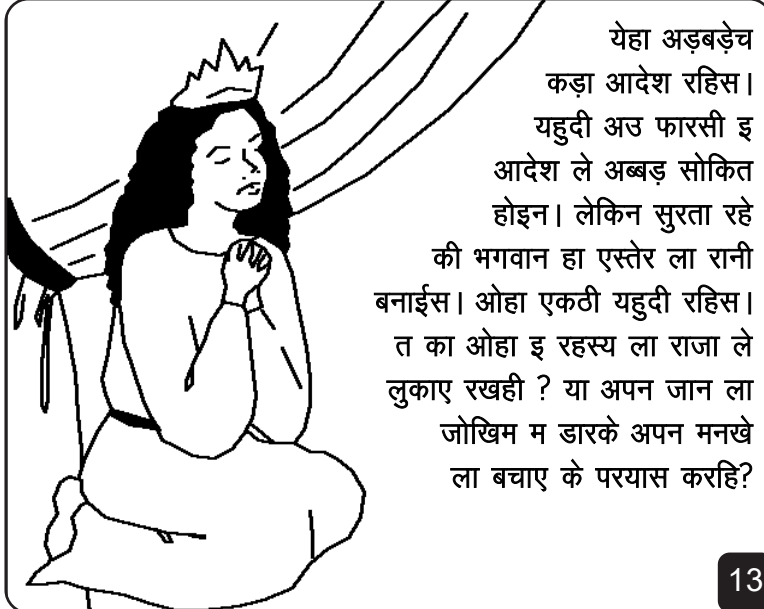 येहा अड़बड़ेच
कड़ा आदेश रहिस।
यहुदी अउ फारसी इ
आदेश ले अब्बड़ सोकित
होइन। लेकिन सुरता रहे
की भगवान हा एस्तेर ला रानी
बनाईस। ओहा एकठी यहुदी रहिस।
त का ओहा इ रहस्य ला राजा ले
लुकाए रखही ? या अपन जान ला
जोखिम म डारके अपन मनखे
ला बचाए के परयास करहि?
13